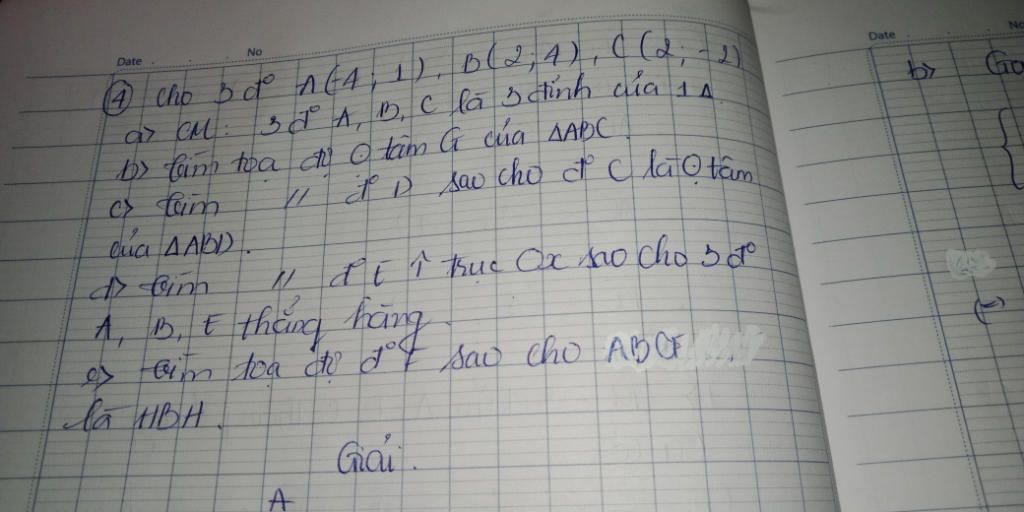 Date No
④ Cho 3 đ° A(-4; 1), B(2; 4), C(2; -2)
a> CM: 3 đ° A, B, C là 3 đỉnh của 1 Δ
b> tìm tọa độ ⊙ tâm G của ΔABC.
c> tìm // đ° D sao cho đ° C là ⊙ tâm
của ΔABD.
d> tìm // đ° E ↑ trục Ox sao cho 3 đ°
A, B, E thẳng hàng.
e> tìm tọa độ đ° F sao cho ABCF
là HBH.
Giải.
A
Date No
b>